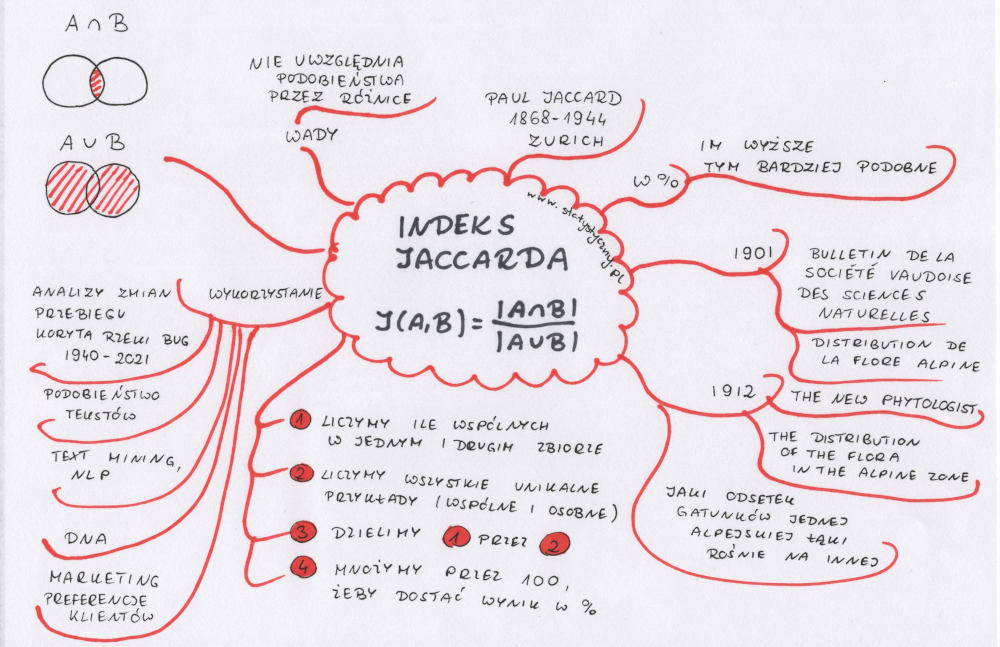 A ∩ B
A ∪ B
NIE UWZGLĘDNIA
PODOBIEŃSTWA
PRZEZ RÓŻNICE
WADY
PAUL JACCARD
1868-1944
ZURICH
W %
IM WYŻSZE
TYM BARDZIEJ PODOBNE
www.statystyczny.pl
INDEKS
JACCARDA
J(A,B) = |A∩B|
|A∪B|
1901
BULLETIN DE LA
SOCIÉTÉ VAUDOISE
DES SCIENCES
NATURELLES
DISTRIBUTION DE
LA FLORE ALPINE
1912
THE NEW PHYTOLOGIST
THE DISTRIBUTION
OF THE FLORA
IN THE ALPINE ZONE
JAKI ODSETEK
GATUNKÓW JEDNEJ
ALPEJSKIEJ ŁĄKI
ROŚNIE NA INNEJ
WYKORZYSTANIE
ANALIZY ZMIAN
PRZEBIEGU
KORYTA RZEKI BUG
1940-2021
PODOBIEŃSTWO
TEKSTÓW
TEXT MINING,
NLP
DNA
MARKETING
PREFERENCJE
KLIENTÓW
1 LICZYMY ILE WSPÓLNYCH
W JEDNYM I DRUGIM ZBIORZE
2 LICZYMY WSZYSTKIE UNIKALNE
PRZYKŁADY (WSPÓLNE I OSOBNE)
3 DZIELIMY 1 PRZEZ 2
4 MNOŻYMY PRZEZ 100,
ŻEBY DOSTAĆ WYNIK W %